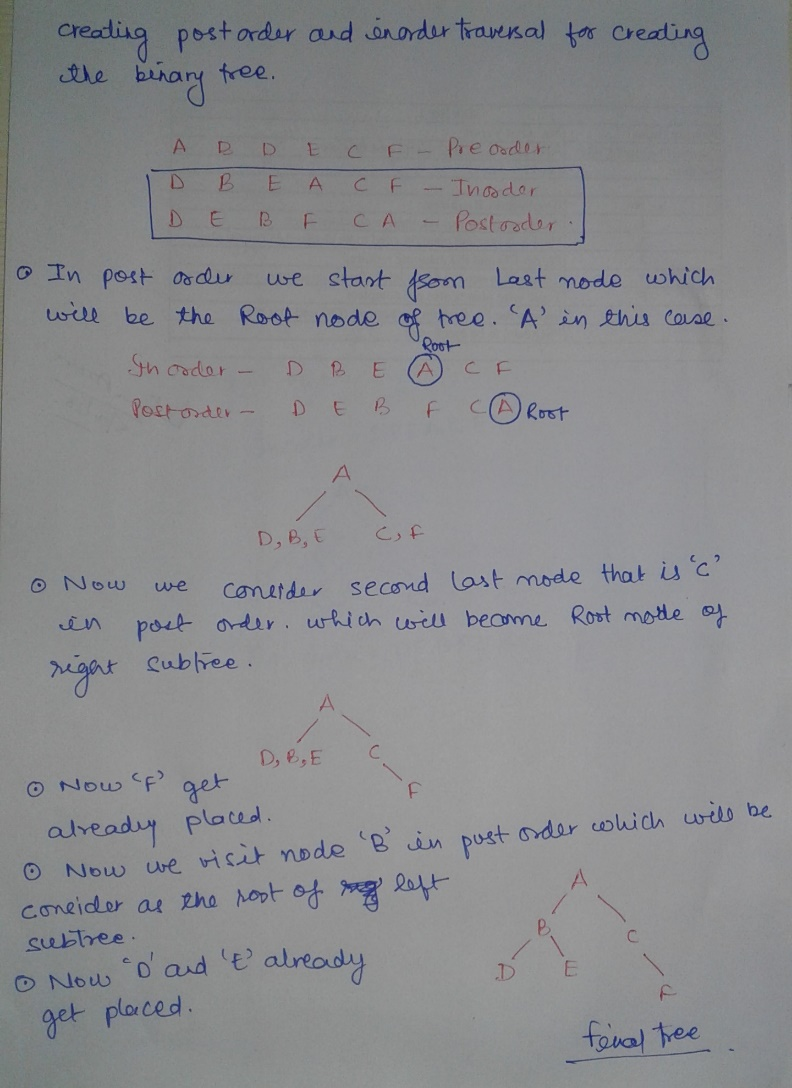 creating post order and inorder traversal for creating
the binary tree.
A B D E C F - Pre order
D B E A C F - Inorder
D E B F C A - Postorder.
In post order we start from Last node which
will be the Root node of tree. 'A' in this case.
Root
In order - D B E A C F
Post order - D E B F C A Root
A
D, B, E C, F
Now we consider second last node that is 'C'
in post order. which will become Root node of
right subtree.
A
D, B, E C
F
Now 'F' get
already placed.
Now we visit node 'B' in post order which will be
consider as the root of left
subtree.
Now 'D' and 'E' already
get placed.
A
B C
D E F
final tree.